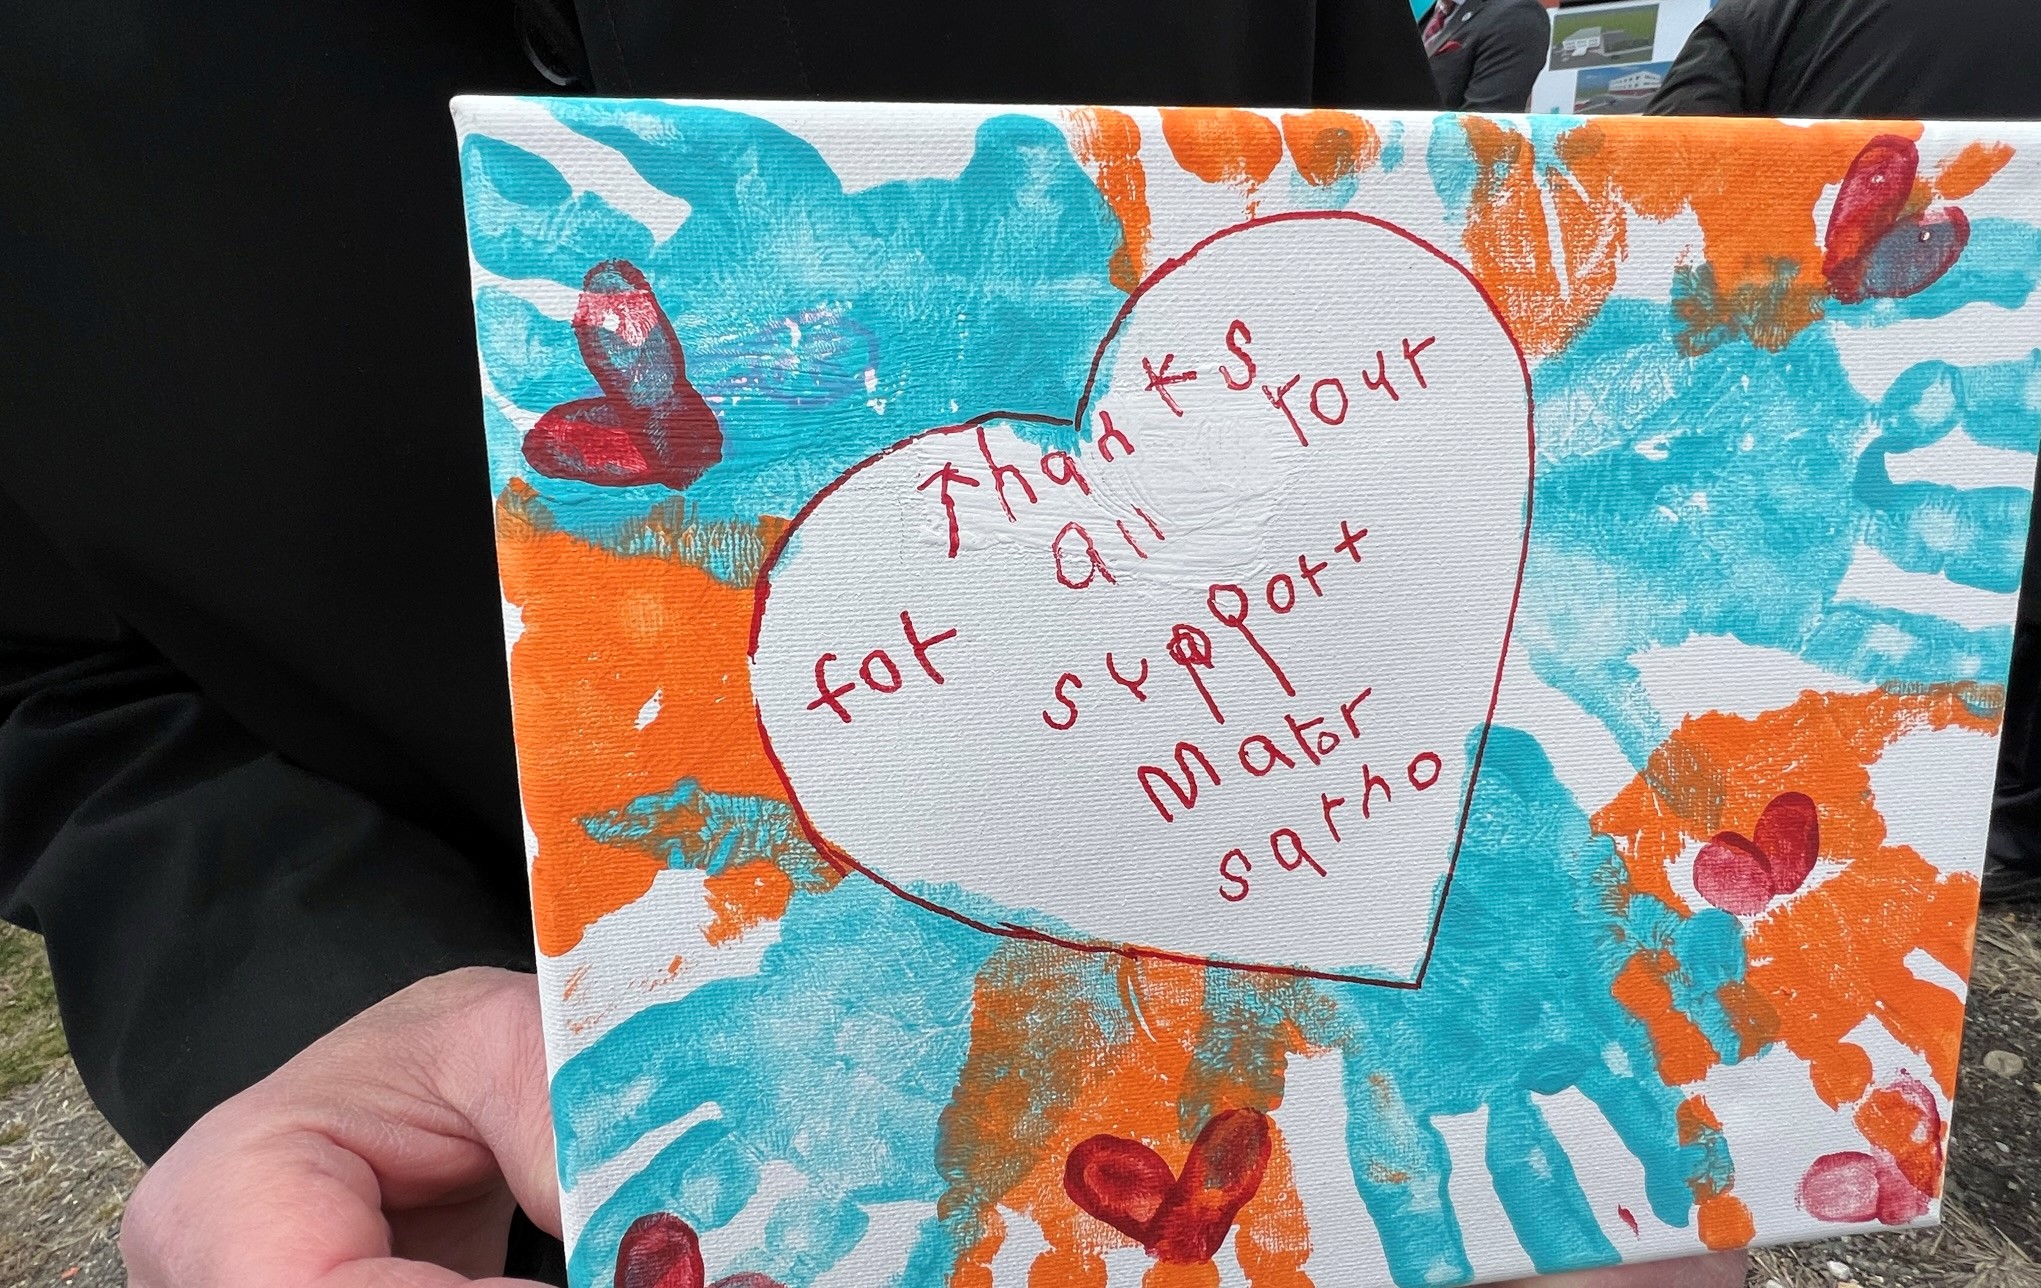 Thanks
for all your
support
Mator
sarno